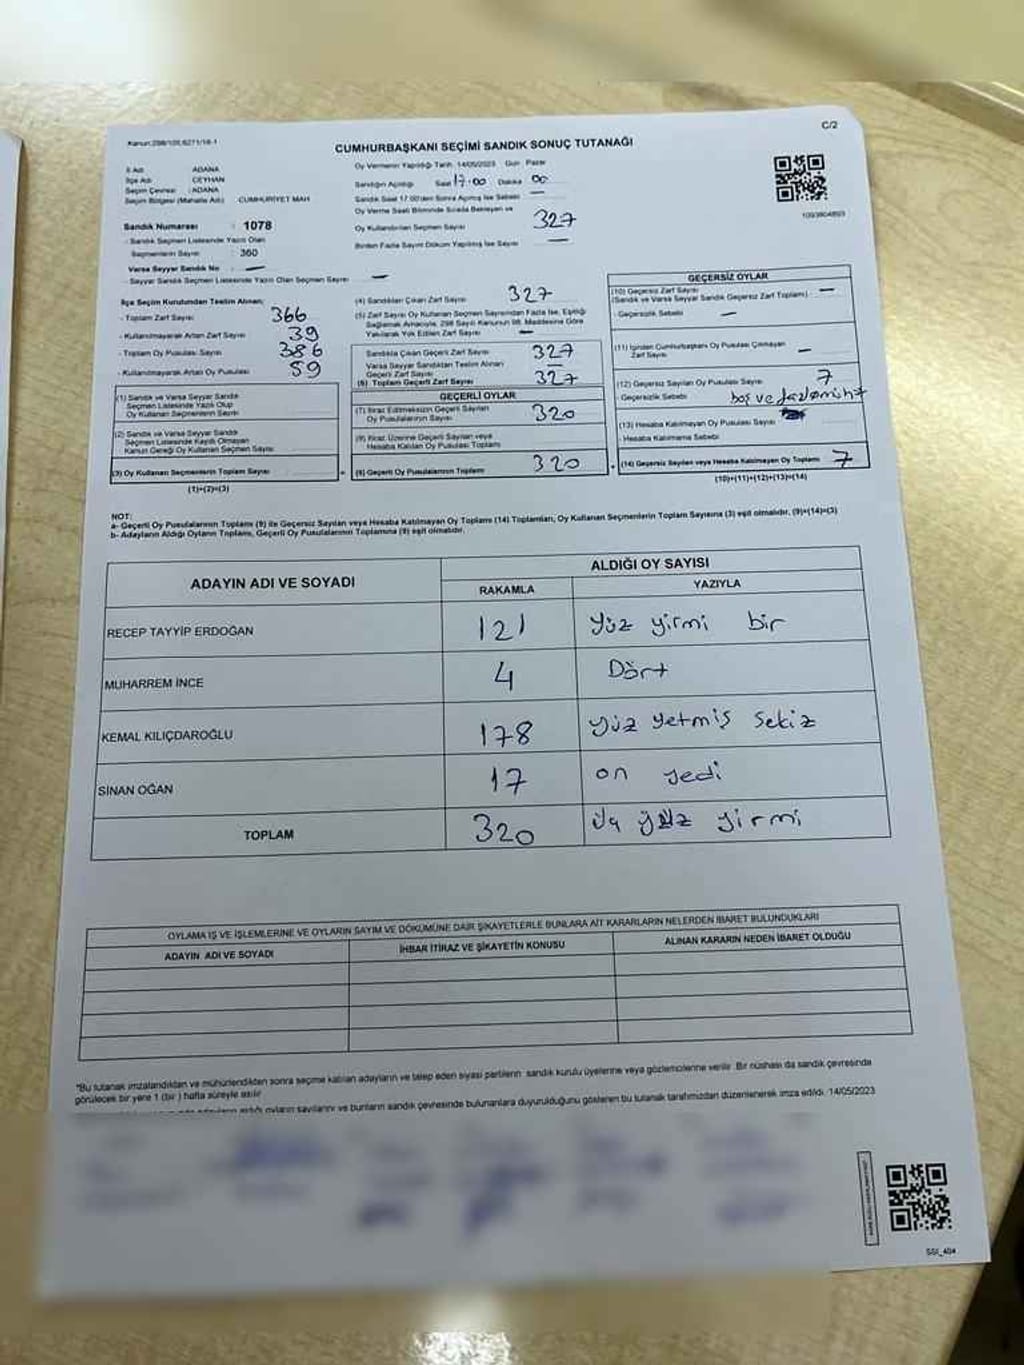 Kanun:298/105,6271/16-1
C/2
CUMHURBAŞKANI SEÇİMİ SANDIK SONUÇ TUTANAĞI
İl Adı ADANA
İlçe Adı CEYHAN
Seçim Çevresi : ADANA
Seçim Bölgesi (Mahalle Adı) CUMHURİYET MAH
Sandık Numarası : 1078
- Sandık Seçmen Listesinde Yazılı Olan
Seçmenlerin Sayısı : 360
Varsa Seyyar Sandık No : —
- Seyyar Sandık Seçmen Listesinde Yazılı Olan Seçmen Sayısı —
Oy Vermenin Yapıldığı Tarih 14/05/2023 Gün Pazar
Sandığın Açıldığı Saat 17:00 Dakika 00
Sandık Saat 17.00'den Sonra Açılmış İse Sebebi —
Oy Verme Saati Bitiminde Sırada Bekleyen ve
Oy Kullandırılan Seçmen Sayısı 327
Birden Fazla Sayım Döküm Yapılmış İse Sayısı —
1093804893
İlçe Seçim Kurulundan Teslim Alınan;
- Toplam Zarf Sayısı 366
- Kullanılmayarak Artan Zarf Sayısı 39
- Toplam Oy Pusulası Sayısı 386
- Kullanılmayarak Artan Oy Pusulası 59
(1) Sandık ve Varsa Seyyar Sandık
Seçmen Listesinde Yazılı Olup
Oy Kullanan Seçmenlerin Sayısı
(2) Sandık ve Varsa Seyyar Sandık
Seçmen Listesinde Kayıtlı Olmayan
Kanun Gereği Oy Kullanan Seçmen Sayısı
(3) Oy Kullanan Seçmenlerin Toplam Sayısı
(1)+(2)=(3)
(4) Sandıktan Çıkan Zarf Sayısı 327
(5) Zarf Sayısı Oy Kullanan Seçmen Sayısından Fazla İse, Eşitliği
Sağlamak Amacıyla, 298 Sayılı Kanunun 98. Maddesine Göre
Yakılarak Yok Edilen Zarf Sayısı —
Sandıkta Çıkan Geçerli Zarf Sayısı 327
Varsa Seyyar Sandıktan Teslim Alınan
Geçerli Zarf Sayısı —
(6) Toplam Geçerli Zarf Sayısı 327
GEÇERLİ OYLAR
(7) İtiraz Edilmeksizin Geçerli Sayılan
Oy Pusulalarının Sayısı 320
(8) İtiraz Üzerine Geçerli Sayılan veya
Hesaba Katılan Oy Pusulası Toplamı
(9) Geçerli Oy Pusulalarının Toplamı 320
GEÇERSİZ OYLAR
(10) Geçersiz Zarf Sayısı —
(Sandık ve Varsa Seyyar Sandık Geçersiz Zarf Toplamı)
- Geçersizlik Sebebi —
(11) İçinden Cumhurbaşkanı Oy Pusulası Çıkmayan
Zarf Sayısı —
(12) Geçersiz Sayılan Oy Pusulası Sayısı 7
- Geçersizlik Sebebi boş ve
(13) Hesaba Katılmayan Oy Pusulası Sayısı
- Hesaba Katılmama Sebebi
(14) Geçersiz Sayılan veya Hesaba Katılmayan Oy Toplamı 7
(10)+(11)+(12)+(13)=(14)
NOT:
a- Geçerli Oy Pusulalarının Toplamı (9) ile Geçersiz Sayılan veya Hesaba Katılmayan Oy Toplamı (14) Toplamları, Oy Kullanan Seçmenlerin Toplam Sayısına (3) eşit olmalıdır. (9)+(14)=(3)
b- Adayların Aldığı Oyların Toplamı, Geçerli Oy Pusulalarının Toplamına (9) eşit olmalıdır.
ADAYIN ADI VE SOYADI
ALDIĞI OY SAYISI
RAKAMLA YAZIYLA
RECEP TAYYİP ERDOĞAN 121 yüz yirmi bir
MUHARREM İNCE 4 Dört
KEMAL KILIÇDAROĞLU 178 yüz yetmiş sekiz
SİNAN OĞAN 17 on yedi
TOPLAM 320 üç yüz yirmi
OYLAMA İŞ VE İŞLEMLERİNE VE OYLARIN SAYIM VE DÖKÜMÜNE DAİR ŞİKAYETLERLE BUNLARA AİT KARARLARIN NELERDEN İBARET BULUNDUKLARI
ADAYIN ADI VE SOYADI İHBAR İTİRAZ VE ŞİKAYETİN KONUSU ALINAN KARARIN NEDEN İBARET OLDUĞU
*Bu tutanak imzalandıktan ve mühürlendikten sonra seçime katılan adayların ve talep eden siyasi partilerin sandık kurulu üyelerine veya gözlemcilerine verilir. Bir nüshası da sandık çevresinde
görülecek bir yere 1 (bir) hafta süreyle asılır.
aldığı oyların sayılarını ve bunların sandık çevresinde bulunanlara duyurulduğunu gösteren bu tutanak tarafımızdan düzenlenerek imza edildi. 14/05/2023
SSI_404